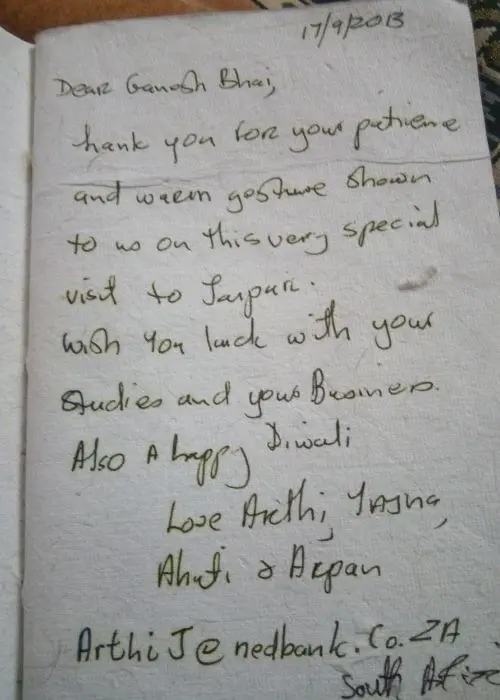 17/9/2013
Dear Ganesh Bhai,
thank you for your patience
and warm gesture shown
to us on this very special
visit to
wish you luck with your
studies and your Business.
Also A happy Diwali
Love Arthi, Yajna,
Ahuti & Arpan
ArthiJ@nedbank.Co.ZA
South Africa